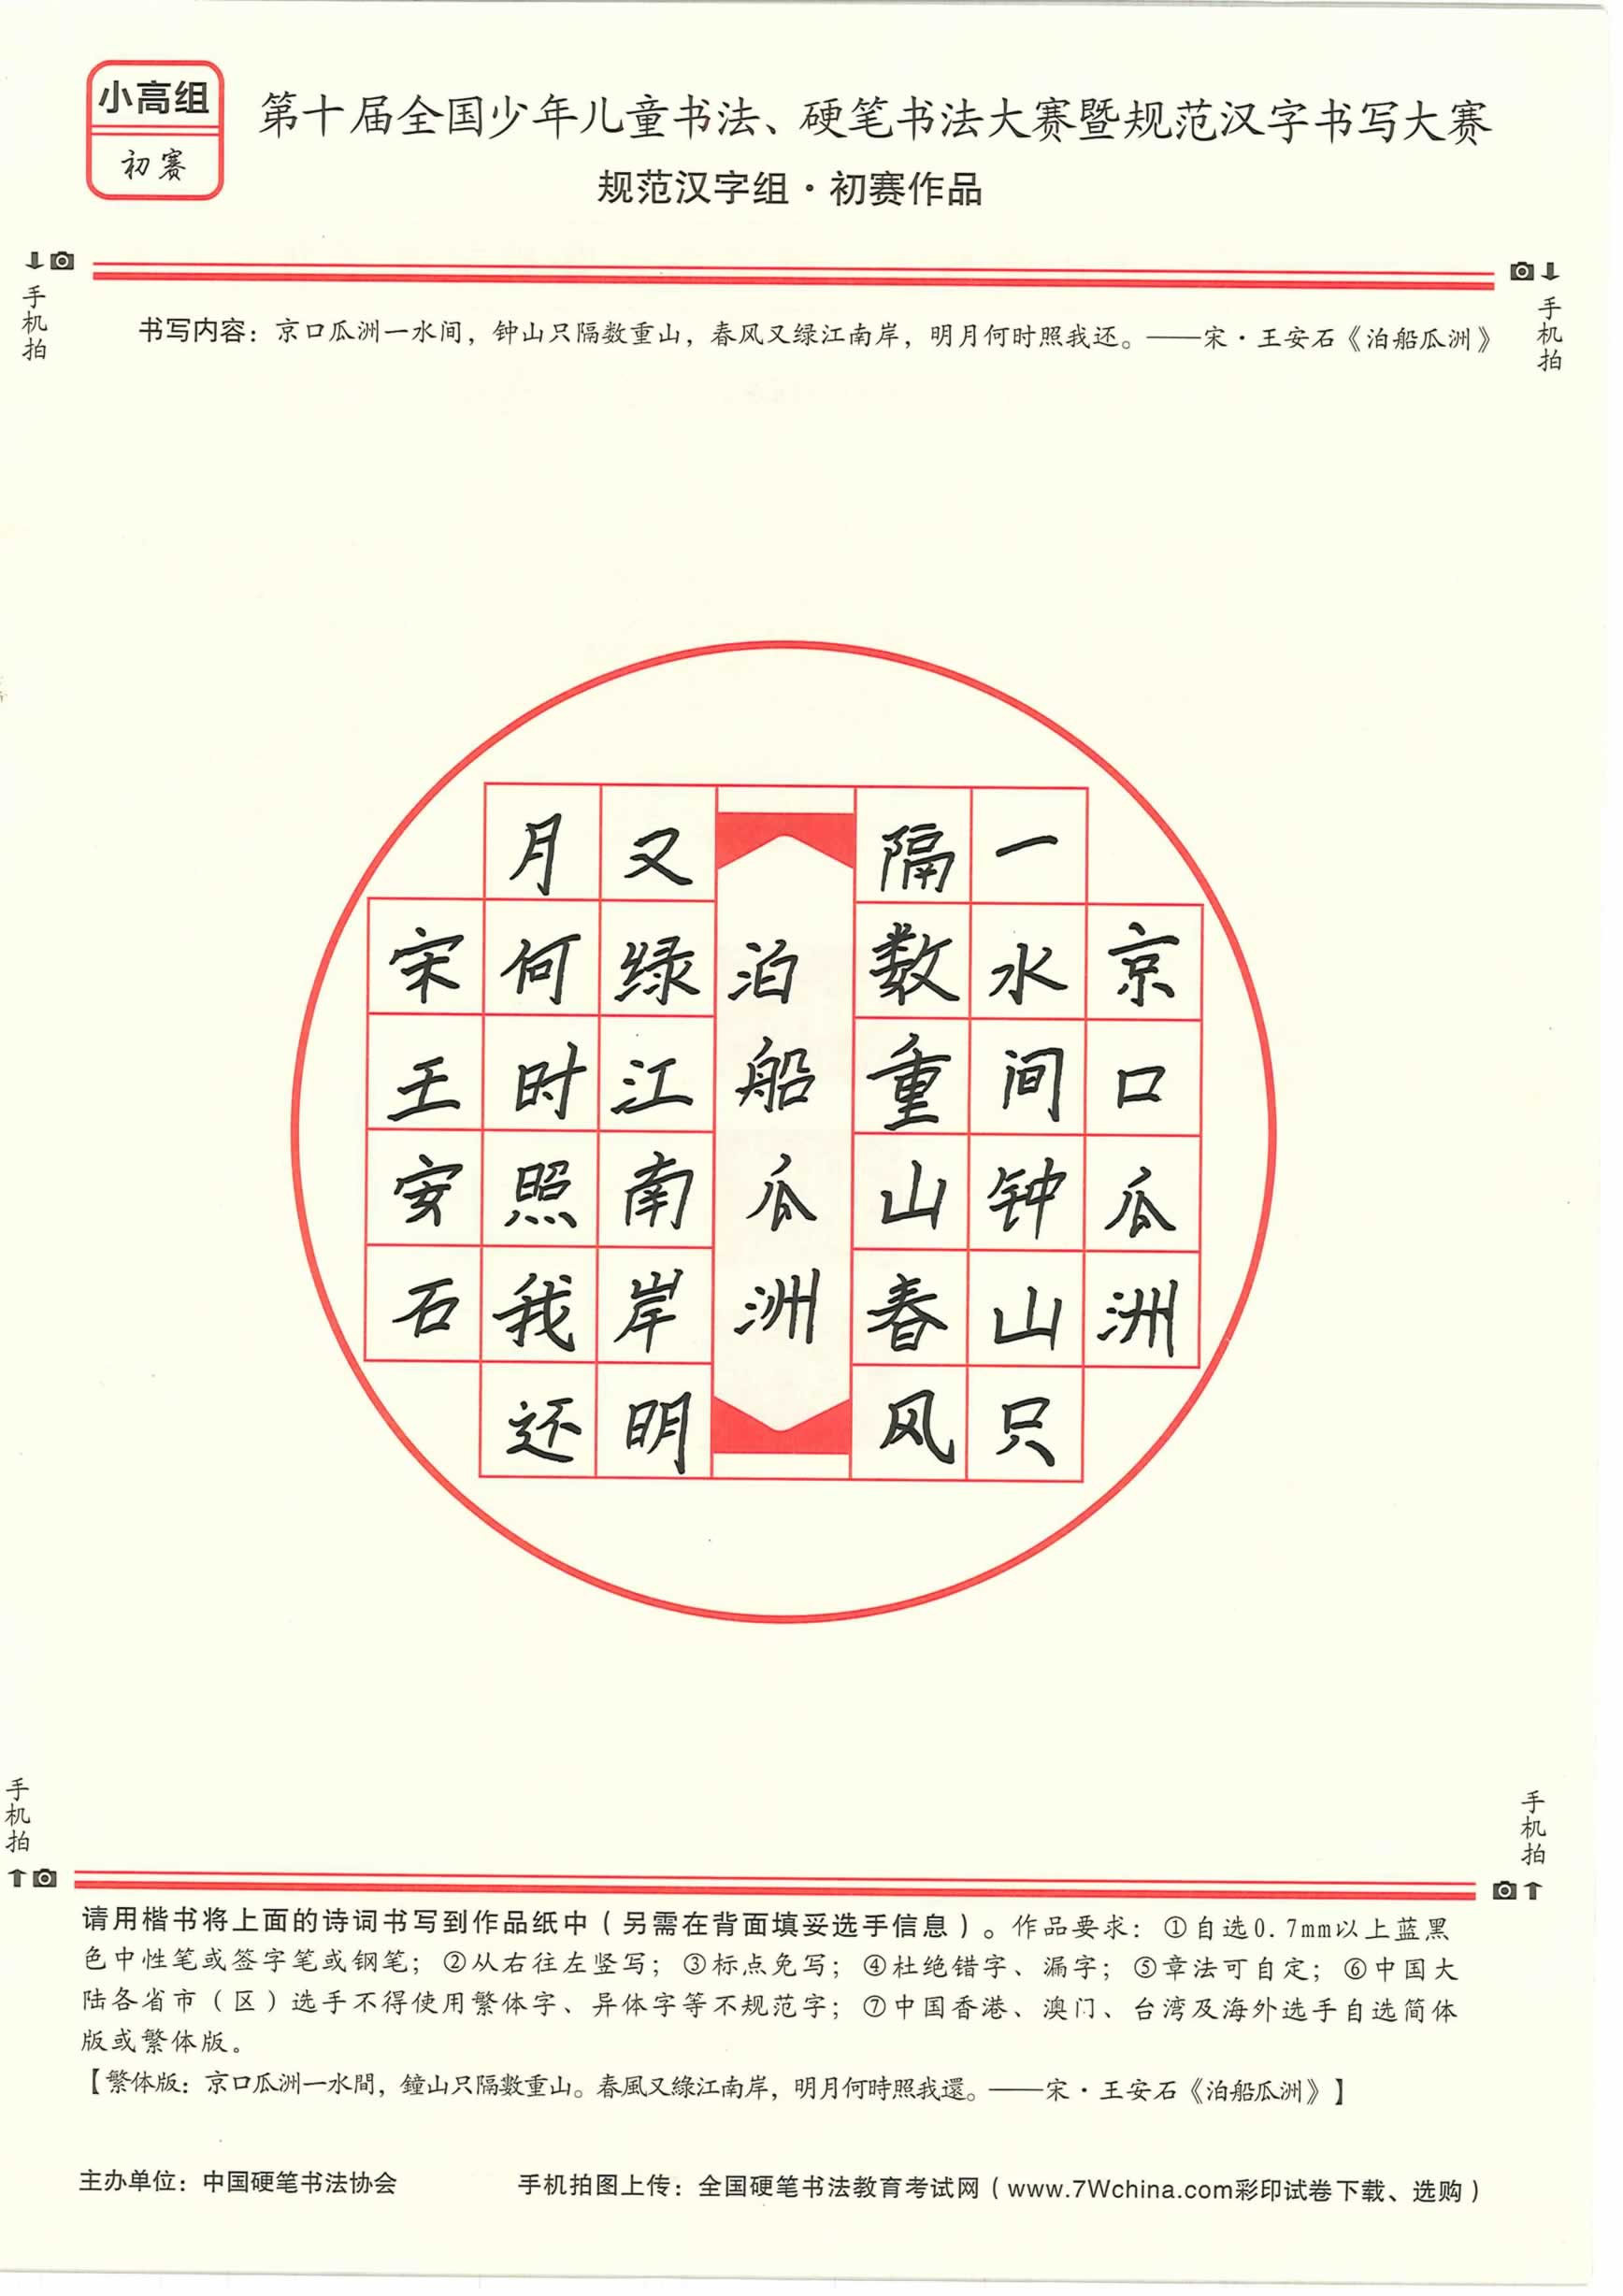 小高组
初赛
第十届全国少年儿童书法、硬笔书法大赛暨规范汉字书写大赛
规范汉字组·初赛作品
手机拍
手机拍
书写内容：京口瓜洲一水间，钟山只隔数重山，春风又绿江南岸，明月何时照我还。——宋·王安石《泊船瓜洲》
京口瓜洲
一水间钟山只
隔数重山春风
泊船瓜洲
又绿江南岸明
月何时照我还
宋王安石
手机拍
手机拍
请用楷书将上面的诗词书写到作品纸中（另需在背面填妥选手信息）。作品要求：①自选0.7mm以上蓝黑
色中性笔或签字笔或钢笔；②从右往左竖写；③标点免写；④杜绝错字、漏字；⑤章法可自定；⑥中国大
陆各省市（区）选手不得使用繁体字、异体字等不规范字；⑦中国香港、澳门、台湾及海外选手自选简体
版或繁体版。
【繁体版：京口瓜洲一水間，鐘山只隔數重山。春風又綠江南岸，明月何時照我還。——宋·王安石《泊船瓜洲》】
主办单位：中国硬笔书法协会
手机拍图上传：全国硬笔书法教育考试网（www.7Wchina.com彩印试卷下载、选购）